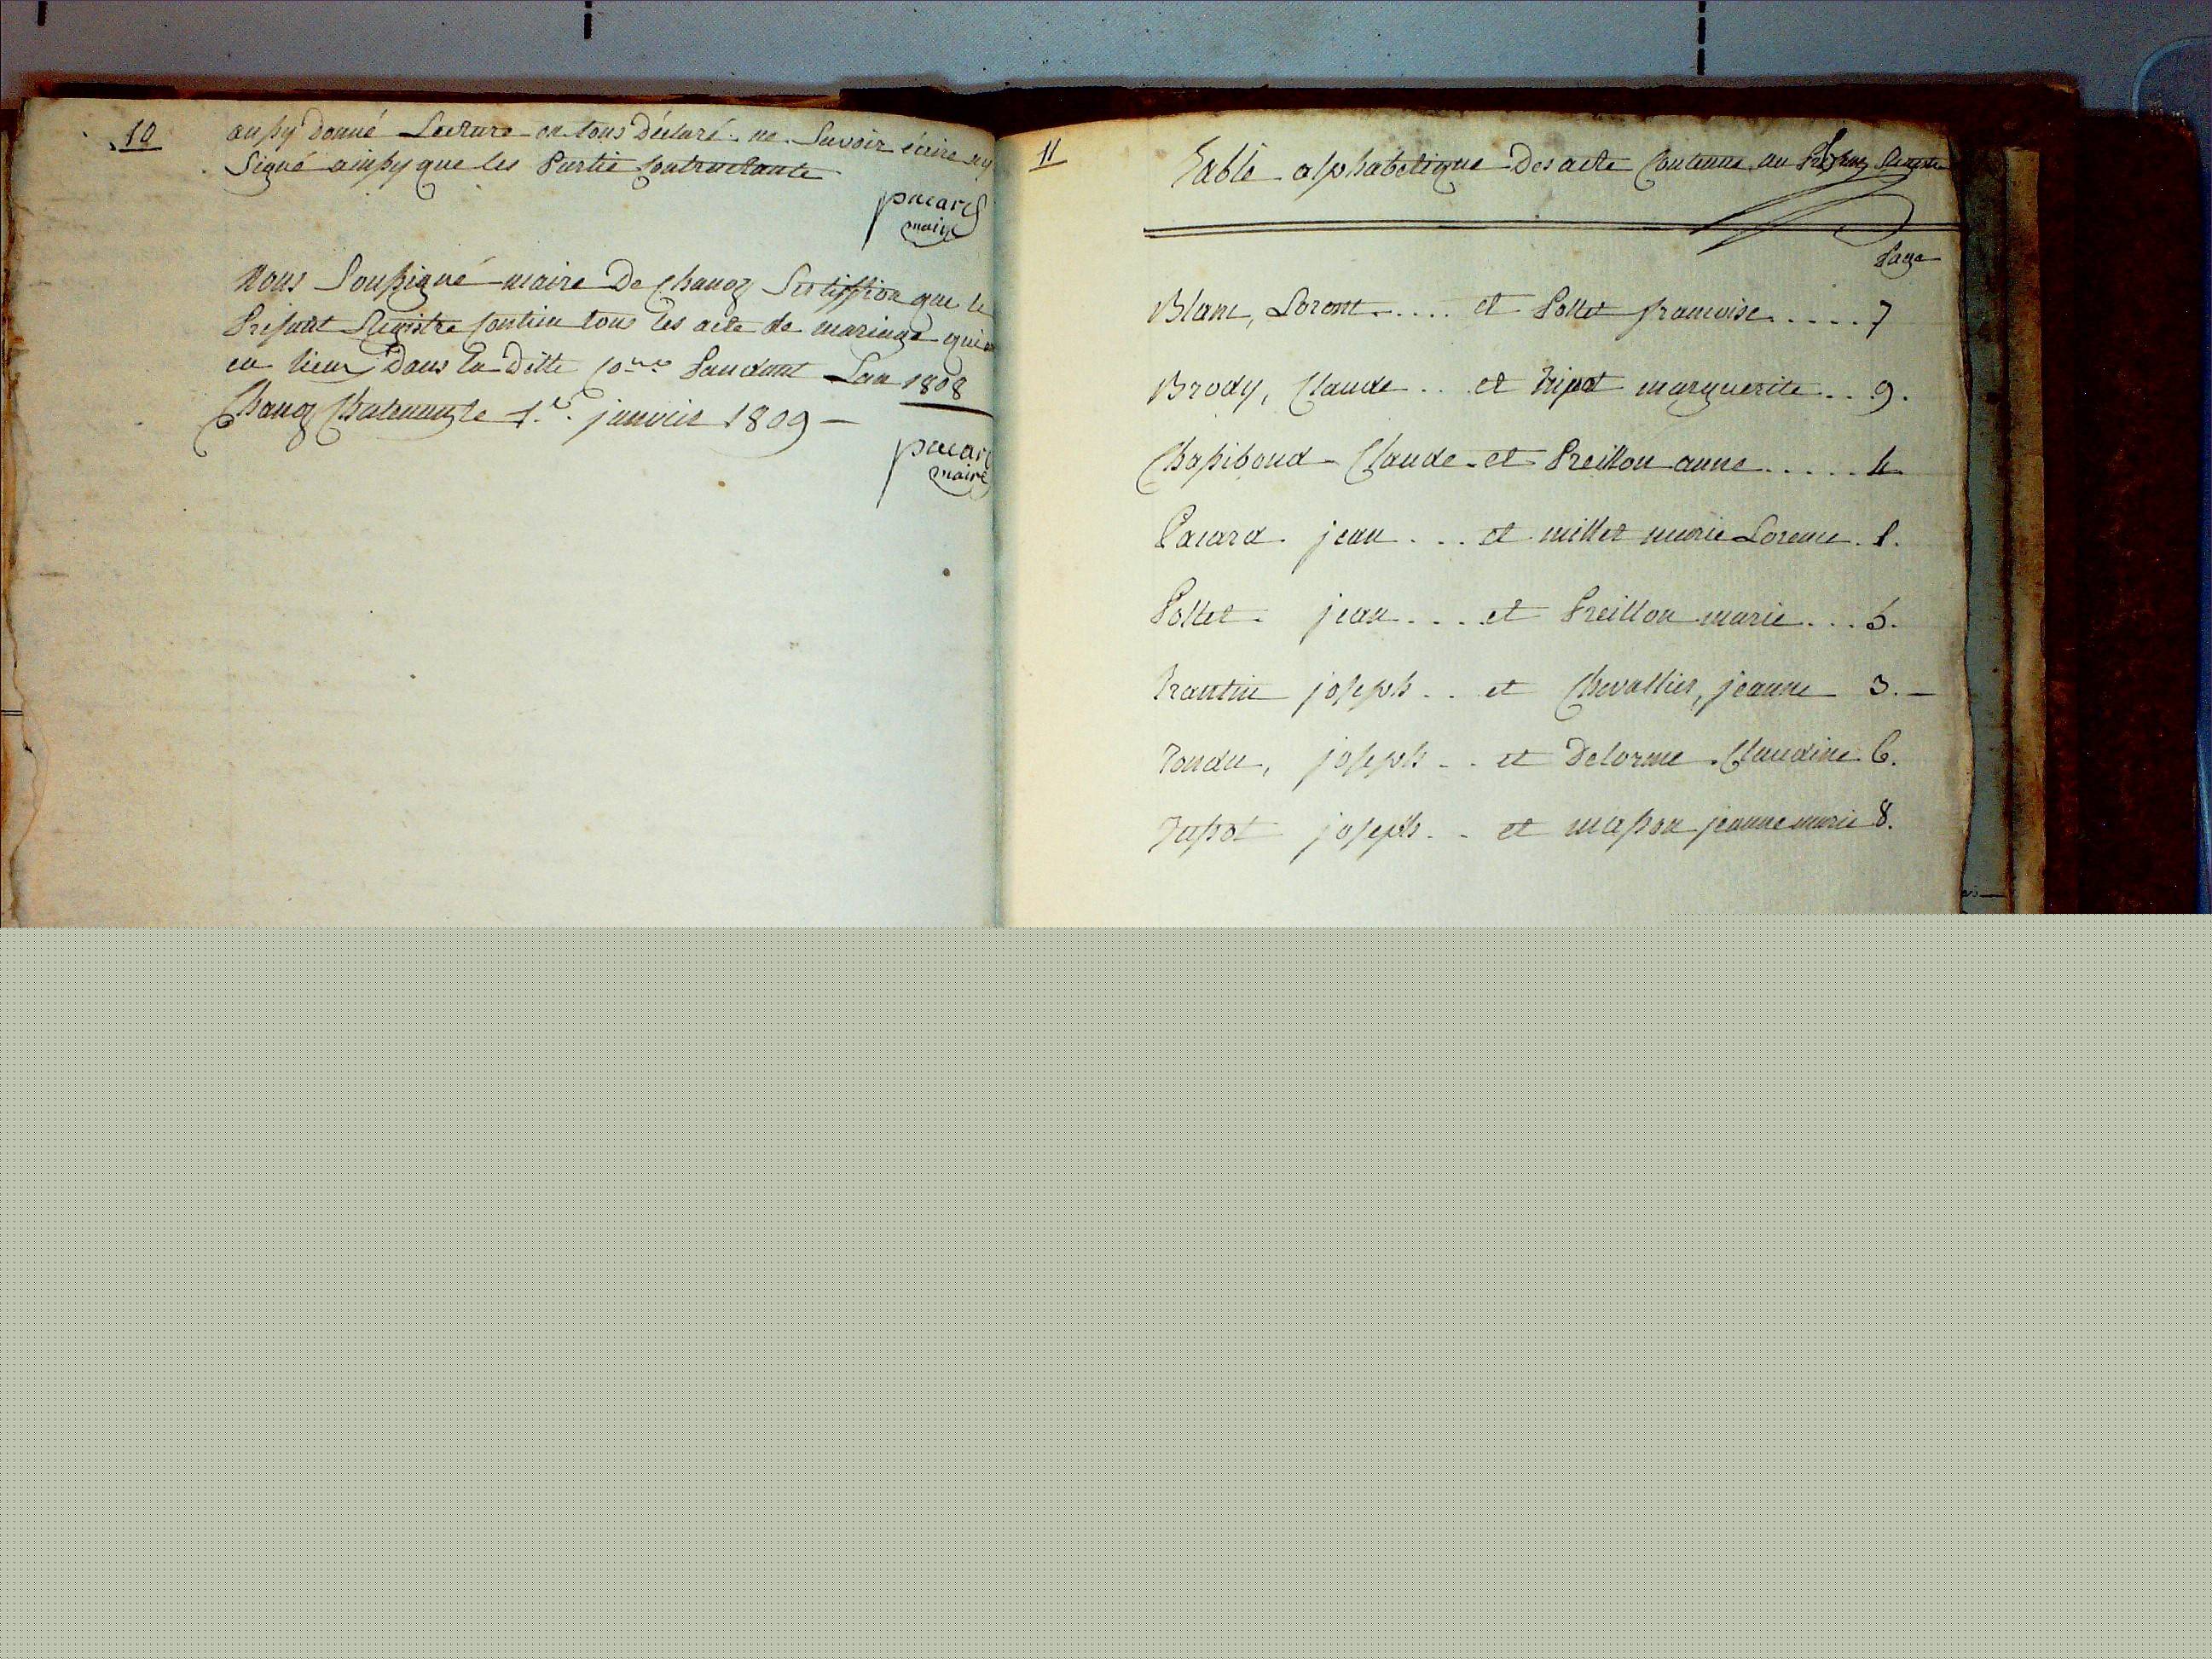 10
aussy donné Lecture on tous Déclaré ne Savoir écire ny
Signé ainssy que les Partie Contractante
pacard
maire
Nous Soussigné maire De Chanoz Sertiffion que le
Present Registre Contien tous les acte de mariage qui
eu lieux Dans la Ditte Co.ne Pandant Lan 1808
Chanoz Chatenay le 1.er janvier 1809
pacard
maire
11
Table alphabetique Des acte Contenue au Registre
Page
Blanc, Loront..... et Pollet francoise..... 7
Brody, Claude .. et marguerite .. 9.
Chassiboud Claude et Preillon anne ..... 4
Pacard jean ... et millet marie Lorence . 1.
Pollet jean ... et Preillon marie ... 5.
Trantin joseph .. et Chevallier, jeanne 3.
Tondu, joseph .. et Delorme Claudine 6.
joseph .. et masson jeanne marie 8.